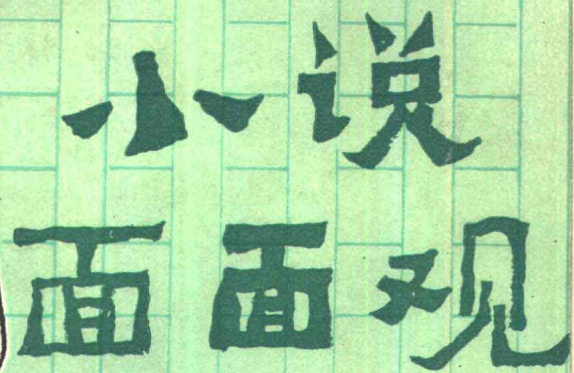 小说
面面观